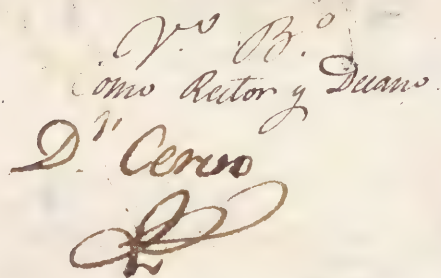 V.º B.º
Como Rector y Decano
D.r Cervo